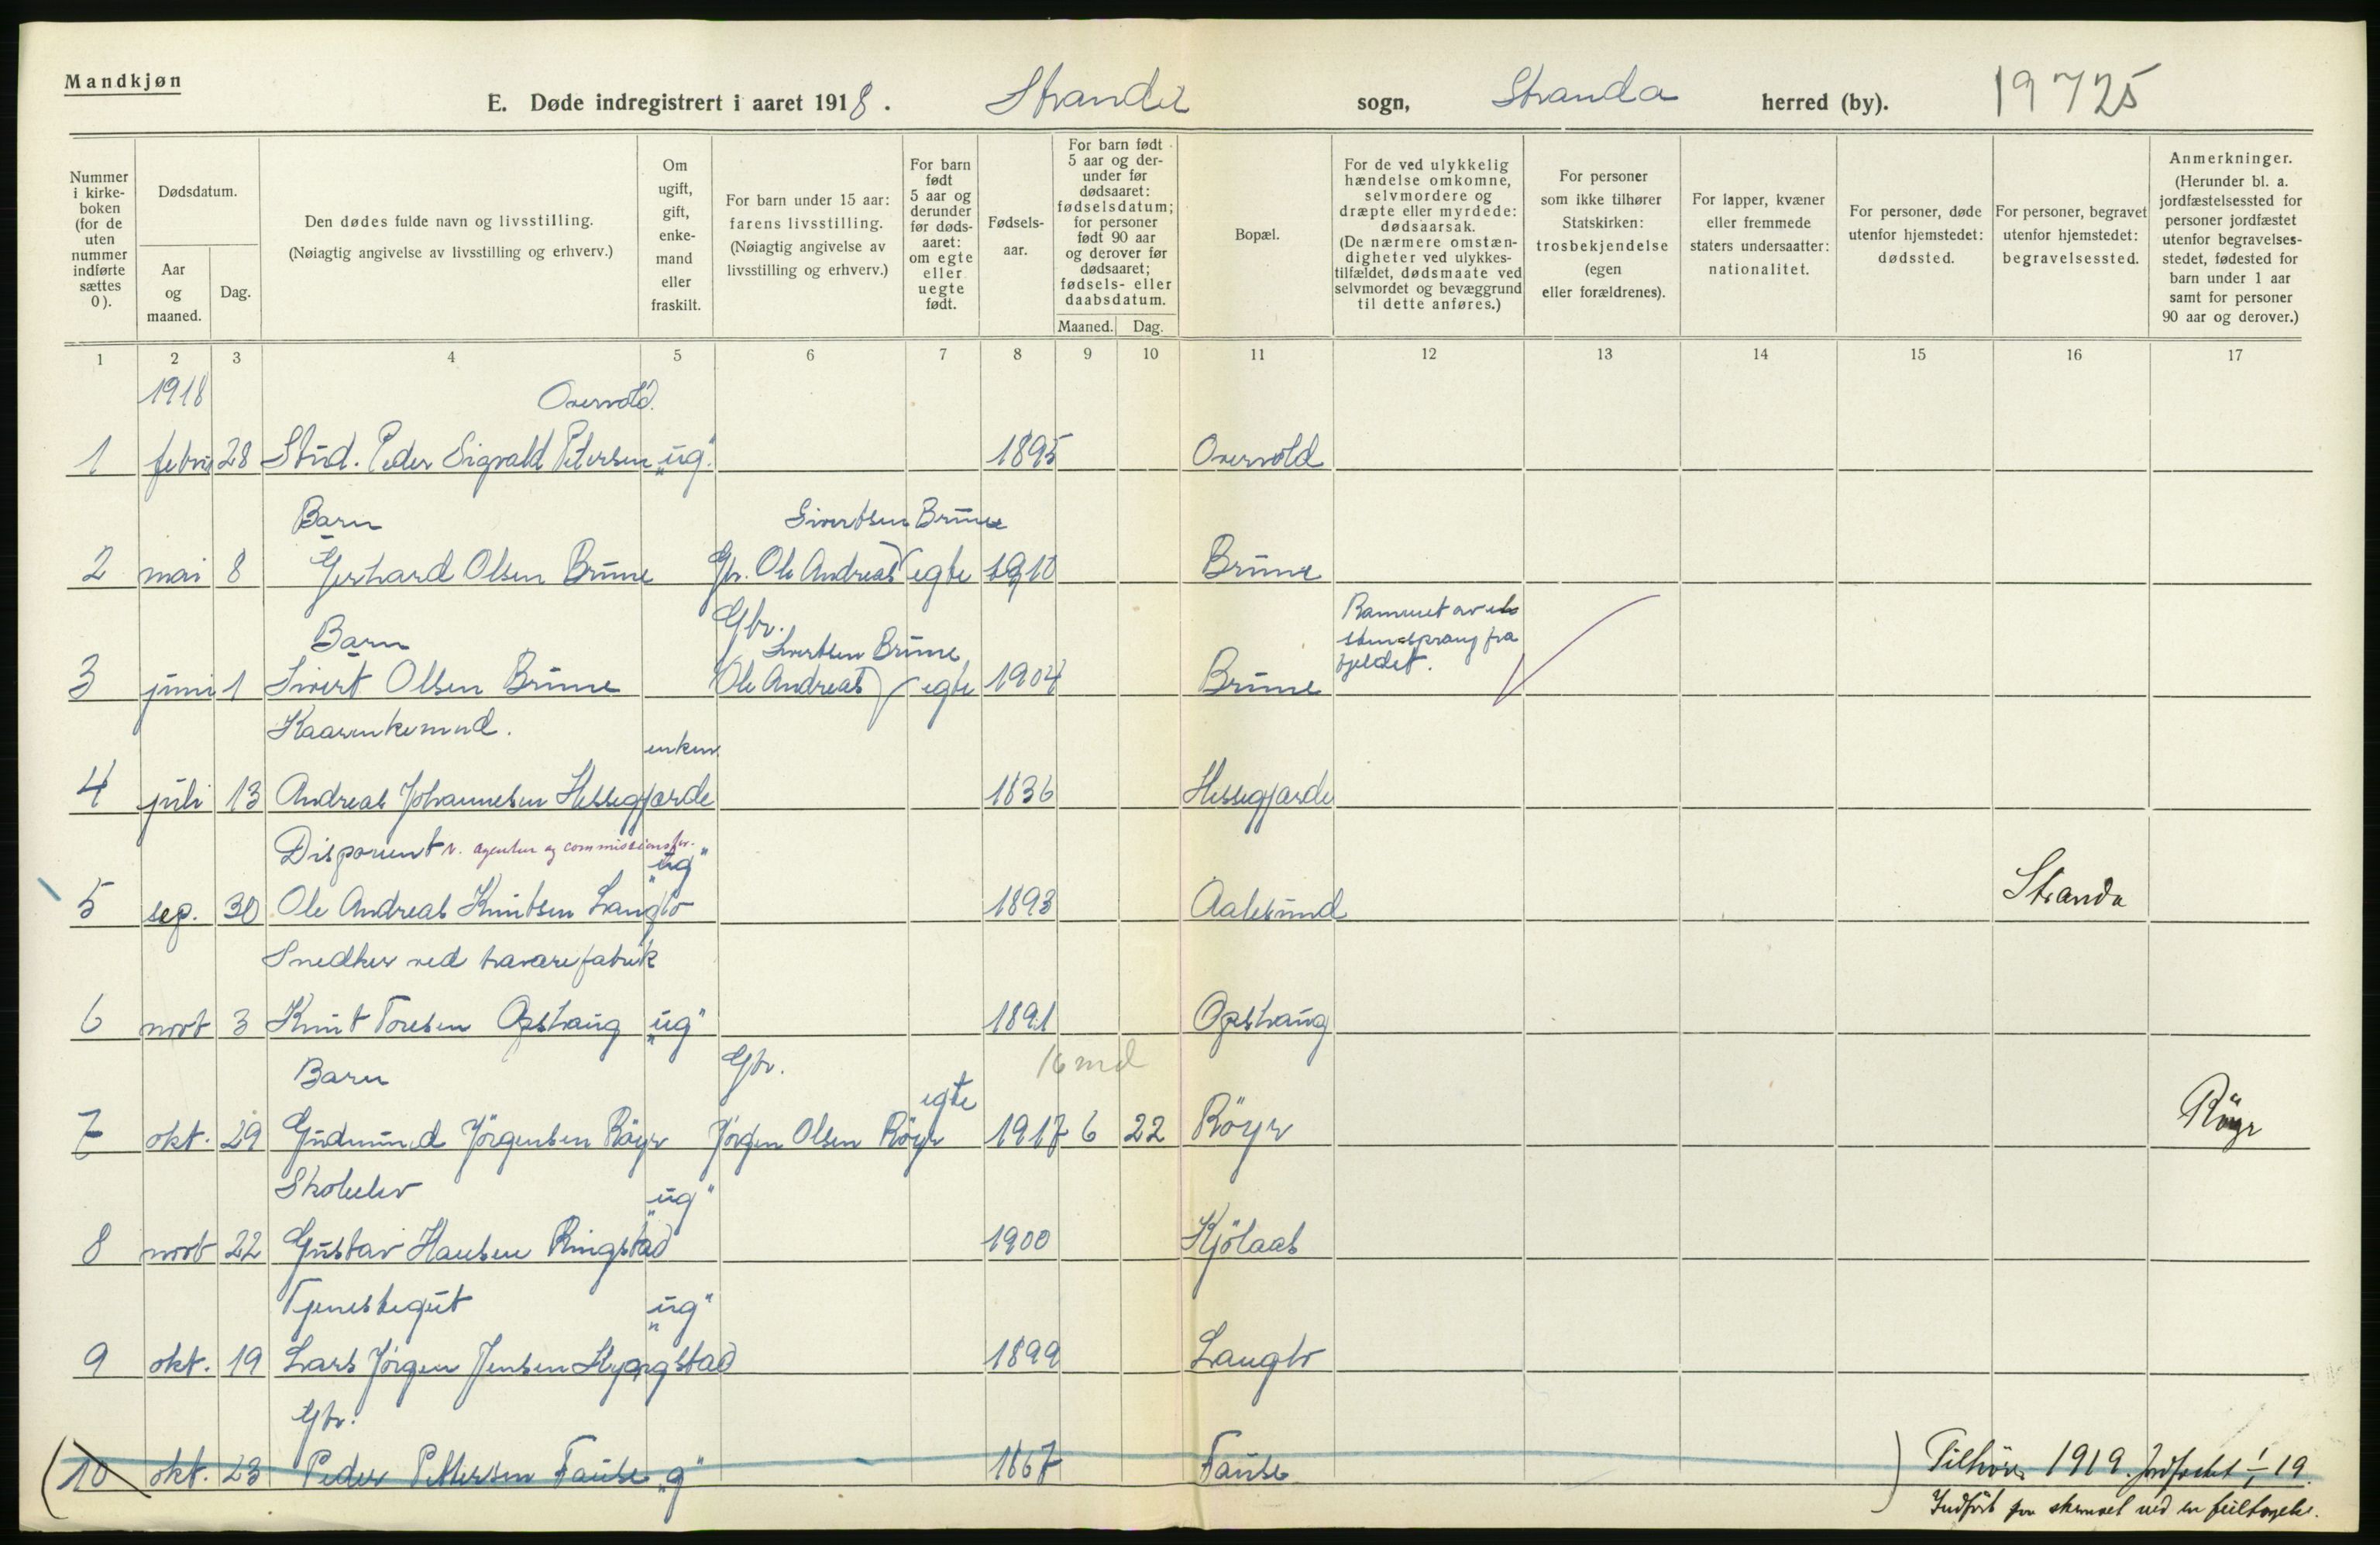 Mandkjøn
E. Døde indregistrert i aaret 1918. Stranda sogn, Stranda herred (by). 19725
Nummer i kirke-boken (for de uten nummer indførte sættes 0).
Dødsdatum.
Aar og maaned.
Dag.
Den dødes fulde navn og livsstilling.
(Nøiagtig angivelse av livsstilling og erhverv.)
Om ugift, gift, enke-mand eller fraskilt.
For barn under 15 aar: farens livsstilling.
(Nøiagtig angivelse av livsstilling og erhverv.)
For barn født 5 aar og derunder før døds-aaret: om egte eller uegte født.
Fødsels-aar.
For barn født 5 aar og der-under før dødsaaret: fødselsdatum; for personer født 90 aar og derover før dødsaaret; fødsels- eller daabsdatum.
Maaned. Dag.
Bopæl.
For de ved ulykkelig hændelse omkomne, selvmordere og dræpte eller myrdede: dødsaarsak.
(De nærmere omstæn-digheter ved ulykkes-tilfældet, dødsmaate ved selvmordet og bevæggrund til dette anføres.)
For personer som ikke tilhører Statskirken: trosbekjendelse (egen eller forældrenes).
For lapper, kvæner eller fremmede staters undersaatter: nationalitet.
For personer, døde utenfor hjemstedet: dødssted.
For personer, begravet utenfor hjemstedet: begravelsessted.
Anmerkninger.
(Herunder bl. a. jordfæstelsessted for personer jordfæstet utenfor begravelses-stedet, fødested for barn under 1 aar samt for personer 90 aar og derover.)
1 2 3 4 5 6 7 8 9 10 11 12 13 14 15 16 17
1918
Overvold.
1 febru 28 Stud. Peder Sigvald Petersen „ug" 1895 Overvold
Barn Sivertsen Brune
2 mai 8 Gerhard Olsen Brune Gbr. Ole Andreas egte 1910 Brune
Barn Gbr. Sivertsen Brune Rammet av
stensprang fra
fjeldet.
3 juni 1 Sivert Olsen Brune Ole Andreas egte 1904 Brune
Kaarenkemnd. enkem.
4 juli 13 Andreas Johannesen Hessegjærde 1836 Hessegjærde
Disponent v. agentur og commissionsfor. „ug"
5 sep. 30 Ole Andreas Knutsen Langlo 1893 Aalesund Stranda
Snedker ved travarefabrik
6 novb 3 Knut Toresen Opshaug „ug" 1891 Opshaug
Barn Gbr. egte 16 md
7 okt. 29 Gudmund Jörgensen Röyr Jörgen Olsen Röyr 1917 6 22 Röyr Röyr
Skoleelev „ug"
8 novb 22 Gustav Hansen Ringstad 1900 Kjölaas
Tjenestegut „ug"
9 okt. 19 Lars Jörgen Jensen 1899 Langlo
Gbr.
(10 okt. 23 Peder Pettersen Fause „g" 1867 Fause ) Tilhörer 1919. Jordfæstet 1/1 19.
Indfört paa skemaet ved en feiltagelse.